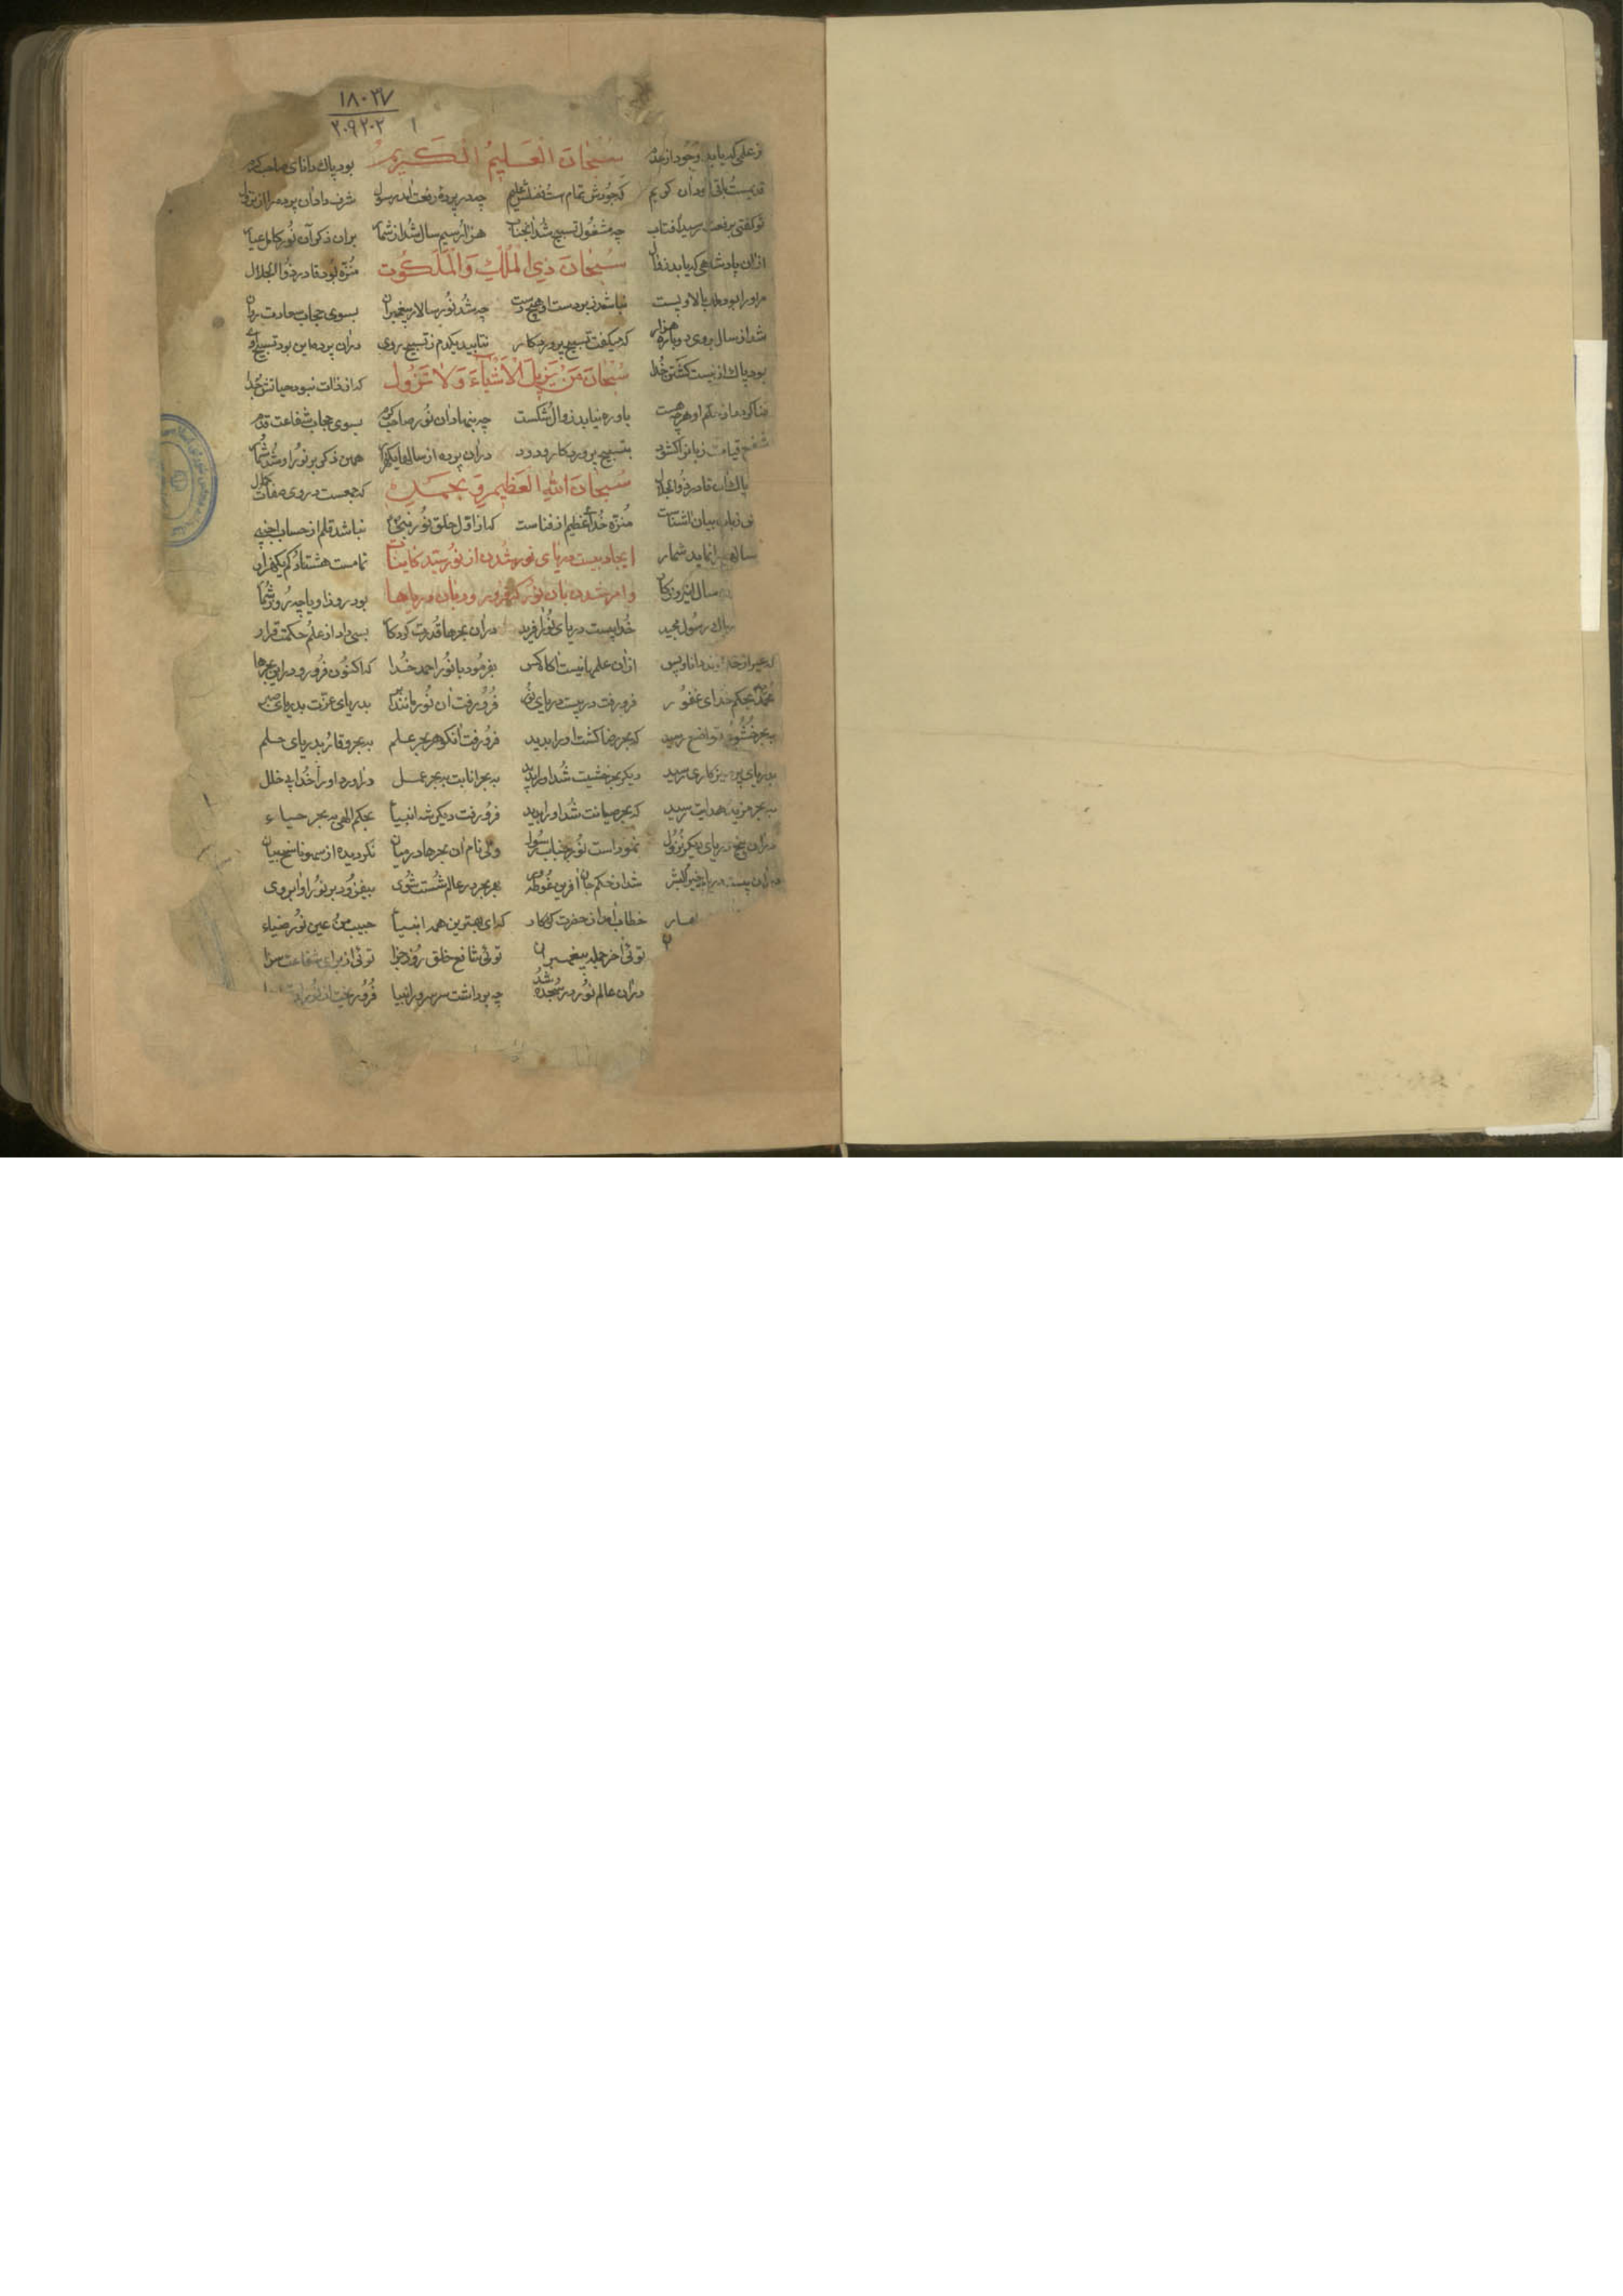 ۱۸۰۳۷
۲۰۹۲۰۲ ۱
ز علمی که یابد وجود از عدم سُبْحَانَ الْعَلِيمُ الْكَرِيمُ بود پاک دانای صاحب کرم
قدیمست باقی و دان کریم که جودش تمام است فضلش عظیم چه در پرده رفعت آمد رسول شرف داد آن پرده را از نزول
تو گفتی برفعت رسید آفتاب چه مشغول تسبیح شد آنجناب هزار سیم سال شد از شمار بر آن ذکر آن نور کامل عیار
از آن پادشاهی که یابد زوال سُبْحَانَ ذِي الْمُلْكِ وَالْمَلَكُوت منزه بود قادر ذوالجلال
مر او را بود ملک بالا و پست نباشد زبر دست او هیچ دست چه شد نور سالار پیغمبران بسوی حجاب سعادت روان
شد از سال بروی دوباره هزار که میگفت تسبیح پروردکار نتابید یکدم ز تسبیح روی در آن پرده این بود تسبیح اوی
بود پاک از نیست کشتن خدا سُبْحَانَ مَنْ يُزِيلُ الْأَشْيَاءَ وَلَا تَزُول که از ذات نبود حیاتش جدا
فنا کردد از حکم او هرچه هست باو ره نیابد زوال شکست چه بنهاد آن نور صاحب کرم بسوی حجاب شفاعت قدم
شفیع قیامت زبانرا کشود بتسبیح پروردکار ودود در آن پرده از سالها یکهزار همین ذکر بر نور او شد شمار
پاک آن قادر ذوالجلال سُبْحَانَ اللهِ الْعَظِيم وَ بِحَمْدِهِ که جمعست در وی صفات کمال
زبان بیان آشناست منزه خدای عظیم از فناست که از اول خلق نور نبی نباشد قلم از حساب
سالها را نماید شمار ایجاد بیست دریای نور شدن از نور سید کاینات تمامست هشتاد کم یکهزار
سال و امر شدن بآن نور که فرو رود بآن دریاها بود روز او یا چه روز شما
پاک رسول مجید خدا بیست دریای نور آفرید در آن بحرها قدرت کردکار بسی داد از علم حکمت قرار
که غیر از خداوند دانا و بس از آن علمها نیست آکاه کس بفرمود با نور احمد خدا که اکنون فرو رو در این بحرها
محمد بحکم خدای غفور فرو رفت در بیست دریای نور فرو رفت آن نور مانند بدریای عزت بدریای صبر
به بحر خشوع تواضع رسید که بحر رضا کشت او را بدید فرو رفت آنکوهر بحر علم به بحر وقار بدریای حلم
بدریای پرهیزکاری رسید دیکر بحر خشیت شد او را پدید به بحر انابت به بحر عمل در آورد او را خدا بی خلل
به بحر مزید هدایت رسید که بحر صیانت شد او را پدید فرو رفت دیکر شه انبیا بحکم الهی به بحر حیاء
در آن پنج دریای دیکر نزول نموده است نور جناب رسول ولی نام آن بحرها در میان نکردیده از سهو ناسخ بیان
در آن بیست دریا شد از حکم جان آفرین غوطه ور بهر بحر در عالم شست شوی بیفزود بر نور او آبروی
خطاب آمد از حضرت کردکار که ای بهترین همه انبیا حبیب من عین نور ضیاء
توئی آخر جمله پیغمبران توئی شافع خلق روز جزا توئی از برای شفاعت سزا
در آن عالم نور در سجده شد چه برداشت سر سرور انبیا فرو ریخت از نور